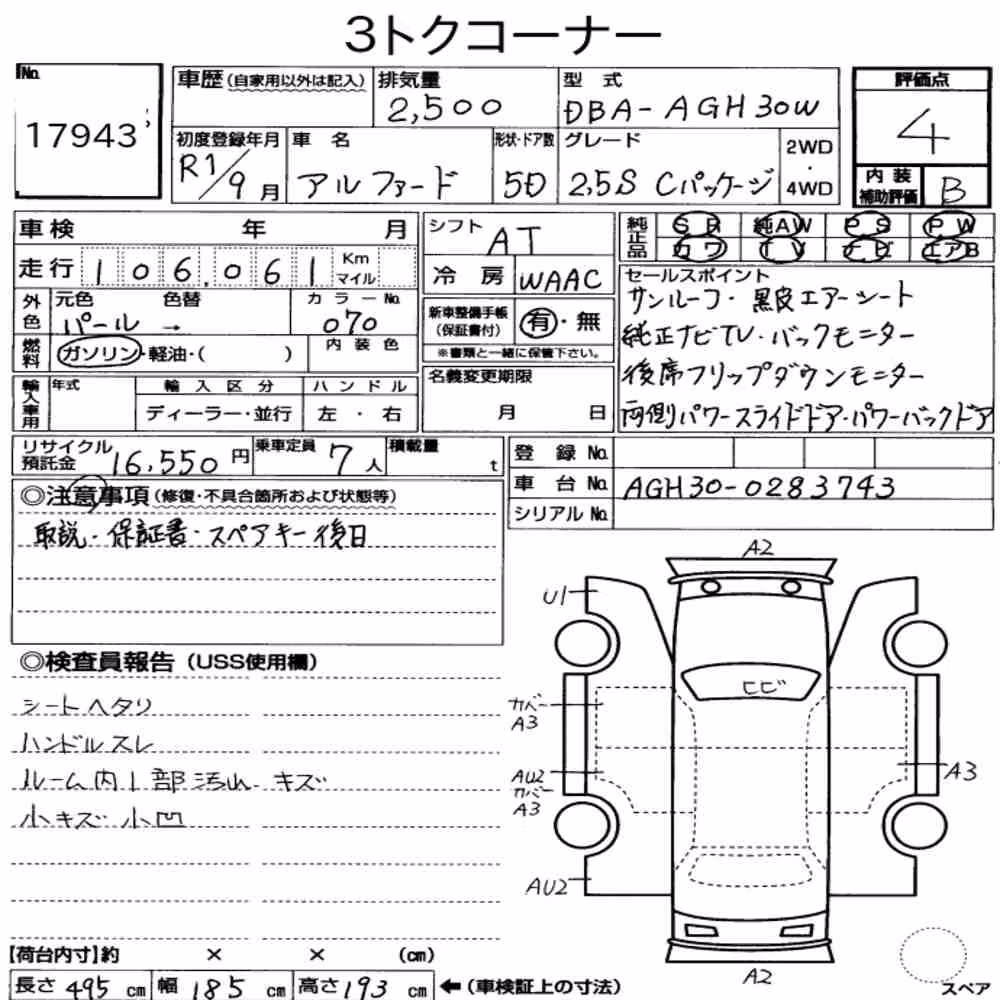 3トクコーナー
No. 17943
車歴 (自家用以外は記入)
排気量 2,500
型式 DBA-AGH30W
評価点 4
内装補助評価 B
初度登録年月 R1/9月
車名 アルファード
形状・ドア数 5D
グレード 2.5S Cパッケージ
2WD・4WD
車検 年 月
走行 106,061 Km マイル
シフト AT
冷房 WAAC
純正品 SR 純AW PS PW
カワ TV ナビ エアB
外色 元色 パール 色替 →
カラーNo. 070
燃料 ガソリン・軽油・( )
内装色
新車整備手帳(保証書付) 有・無
※書類と一緒に保管下さい。
セールスポイント
サンルーフ・黒皮エアーシート
純正ナビTV・バックモニター
後席フリップダウンモニター
両側パワースライドドア・パワーバックドア
輸入車用 年式 輸入区分 ハンドル
ディーラー・並行 左・右
名義変更期限 月 日
リサイクル預託金 16,550円
乗車定員 7人
積載量 t
登録No.
車台No. AGH30-0283743
シリアルNo.
◎注意事項 (修復・不具合箇所および状態等)
取説・保証書・スペアキー後日
◎検査員報告 (USS使用欄)
シートヘタリ
ハンドルスレ
ルーム内1部汚れ キズ
小キズ 小凹
A2
U1
ヒビ
カバー
A3
AU2
カバー
A3
A3
AU2
A2
スペア
【荷台内寸】約 × × (cm)
長さ 495 cm 幅 185 cm 高さ 193 cm ←(車検証上の寸法)